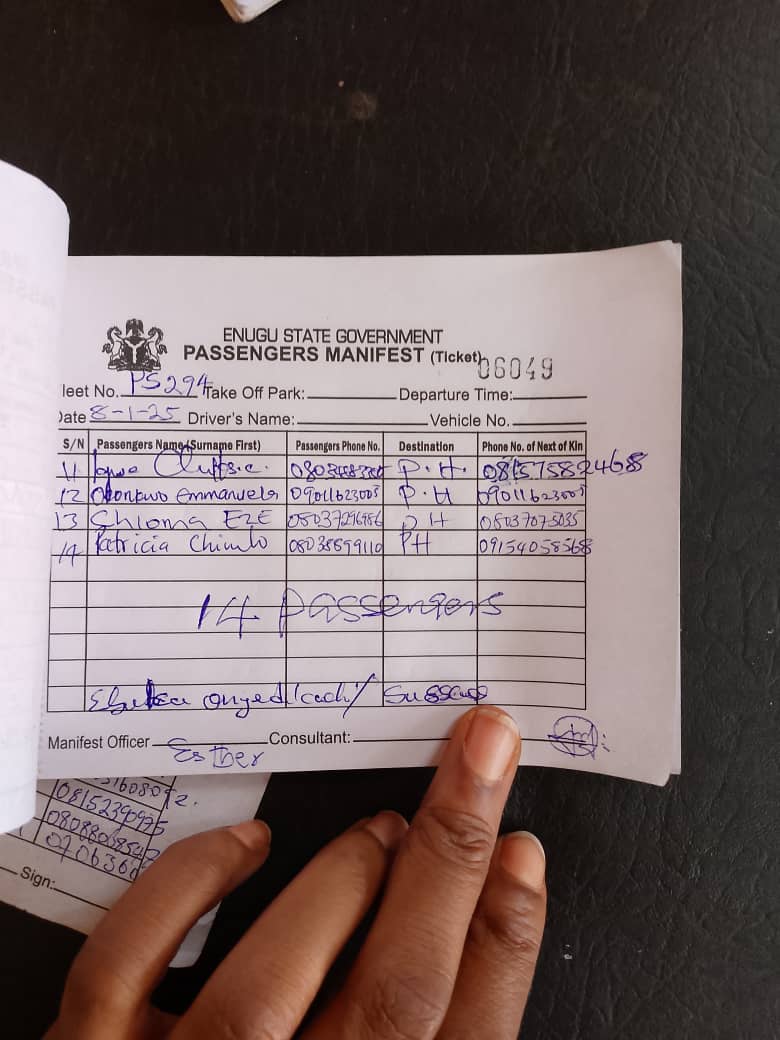 ENUGU STATE GOVERNMENT
PASSENGERS MANIFEST (Ticket) 06049
leet No. PS294 Take Off Park: Departure Time:
Date 8-1-25 Driver's Name: Vehicle No.
S/N Passengers Name (Surname First) Passengers Phone No. Destination Phone No. of Next of Kin
11 P.H. 08157582468
12 Emmanuela 09011623005 P.H 09011623005
13 Chioma EZE 08037296986 PH 08037075035
14 Patricia 08038899110 PH 09154058568
14 Passengers
Manifest Officer Esther Consultant:
0815239
Sign: